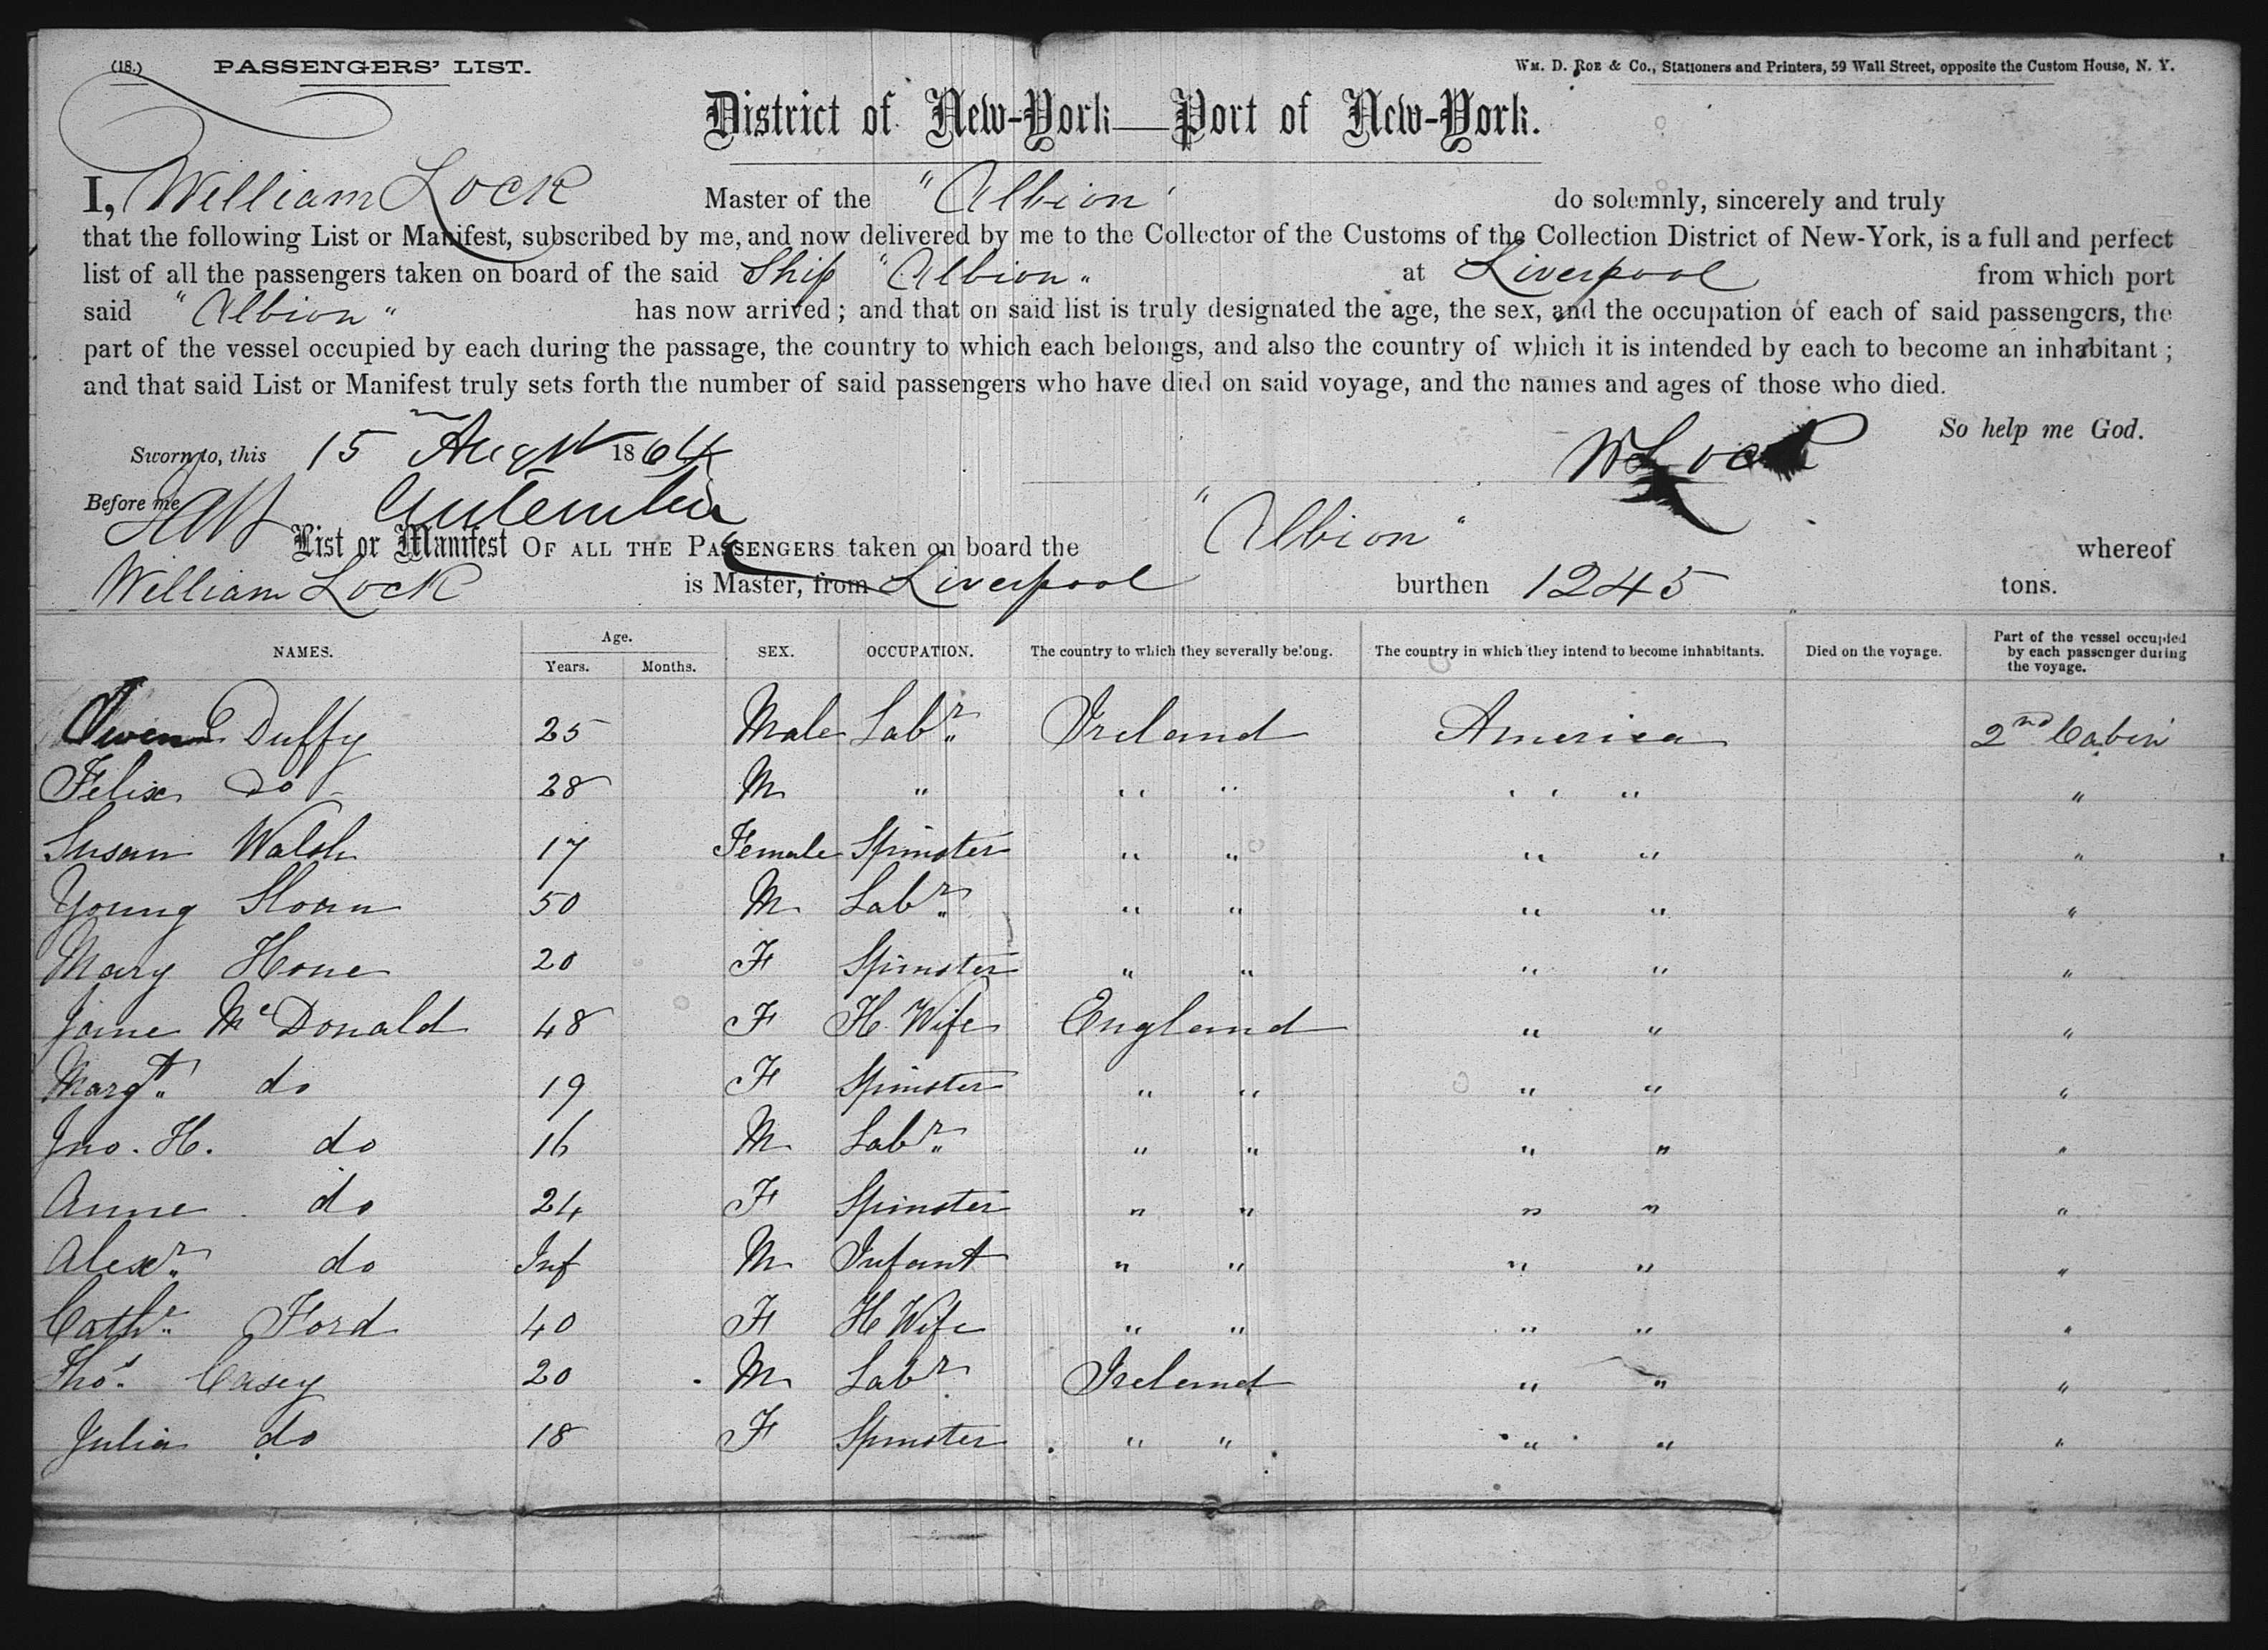 (18.) PASSENGERS' LIST. WM. D. ROE & Co., Stationers and Printers, 59 Wall Street, opposite the Custom House, N. Y.
District of New-York—Port of New-York.
I, William Lock Master of the "Albion" do solemnly, sincerely and truly
that the following List or Manifest, subscribed by me, and now delivered by me to the Collector of the Customs of the Collection District of New-York, is a full and perfect
list of all the passengers taken on board of the said Ship "Albion" at Liverpool from which port
said "Albion" has now arrived; and that on said list is truly designated the age, the sex, and the occupation of each of said passengers, the
part of the vessel occupied by each during the passage, the country to which each belongs, and also the country of which it is intended by each to become an inhabitant;
and that said List or Manifest truly sets forth the number of said passengers who have died on said voyage, and the names and ages of those who died.
So help me God.
Sworn to, this 15 Augst 1864 W Lock
Before me
List or Manifest OF ALL THE PASSENGERS taken on board the "Albion" whereof
William Lock is Master, from Liverpool burthen 1245 tons.
NAMES. Age. Years. Months. SEX. OCCUPATION. The country to which they severally belong. The country in which they intend to become inhabitants. Died on the voyage. Part of the vessel occupied by each passenger during the voyage.
Owen Duffy 25 Male Labr Ireland America 2nd Cabin
Felix Do 28 M " " " " " "
Susan Walsh 17 Female Spinster " " " " "
Young Sloan 50 M Labr " " " " "
Mary Hone 20 F Spinster " " " " "
Jane McDonald 48 F H. Wife England " " "
Margt do 19 F Spinster " " " " "
Jno. H. do 16 M Labr " " " " "
Anne do 24 F Spinster " " " " "
Alexr do Inf M Infant " " " " "
Cathr Ford 40 F H Wife " " " " "
Thos Casey 20 M Labr Ireland " " "
Julia do 18 F Spinster " " " " "